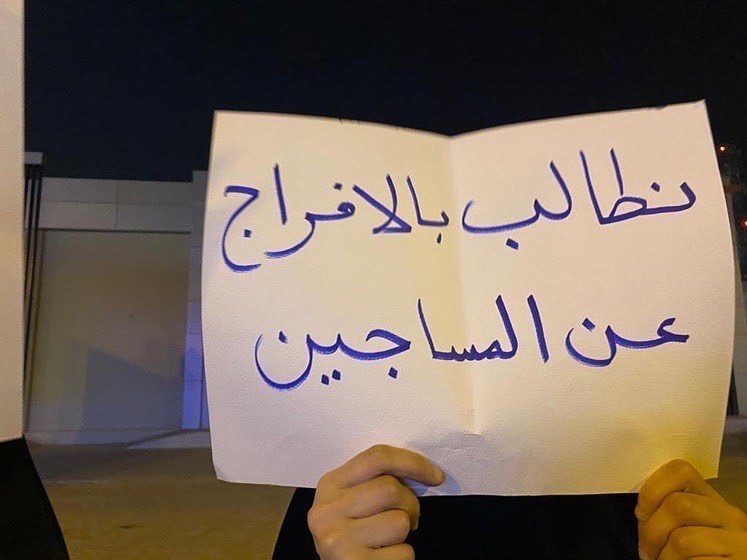 نطالب بالافراج
عن المساجين